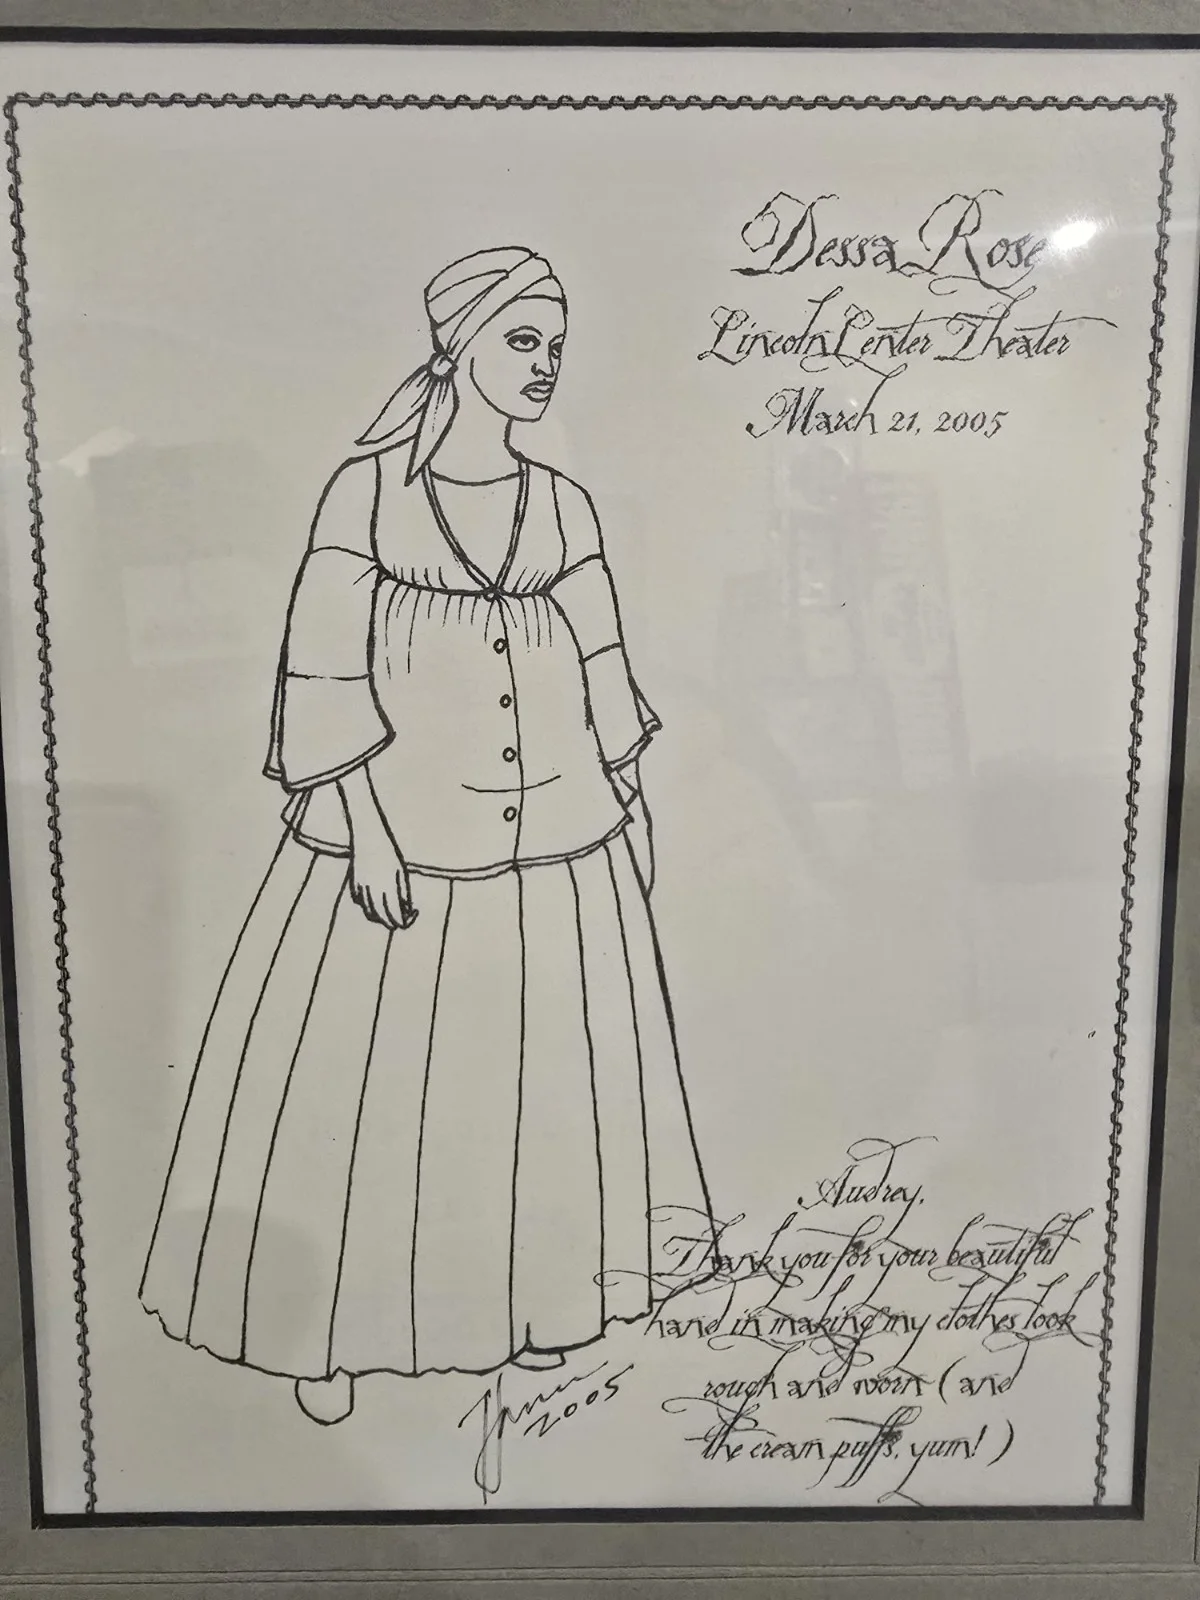 Dessa Rose
Lincoln Center Theater
March 21, 2005
Audrey,
Thank you for your beautiful
hand in making my clothes look
rough and worn (and
the cream puffs, yum!)
2005